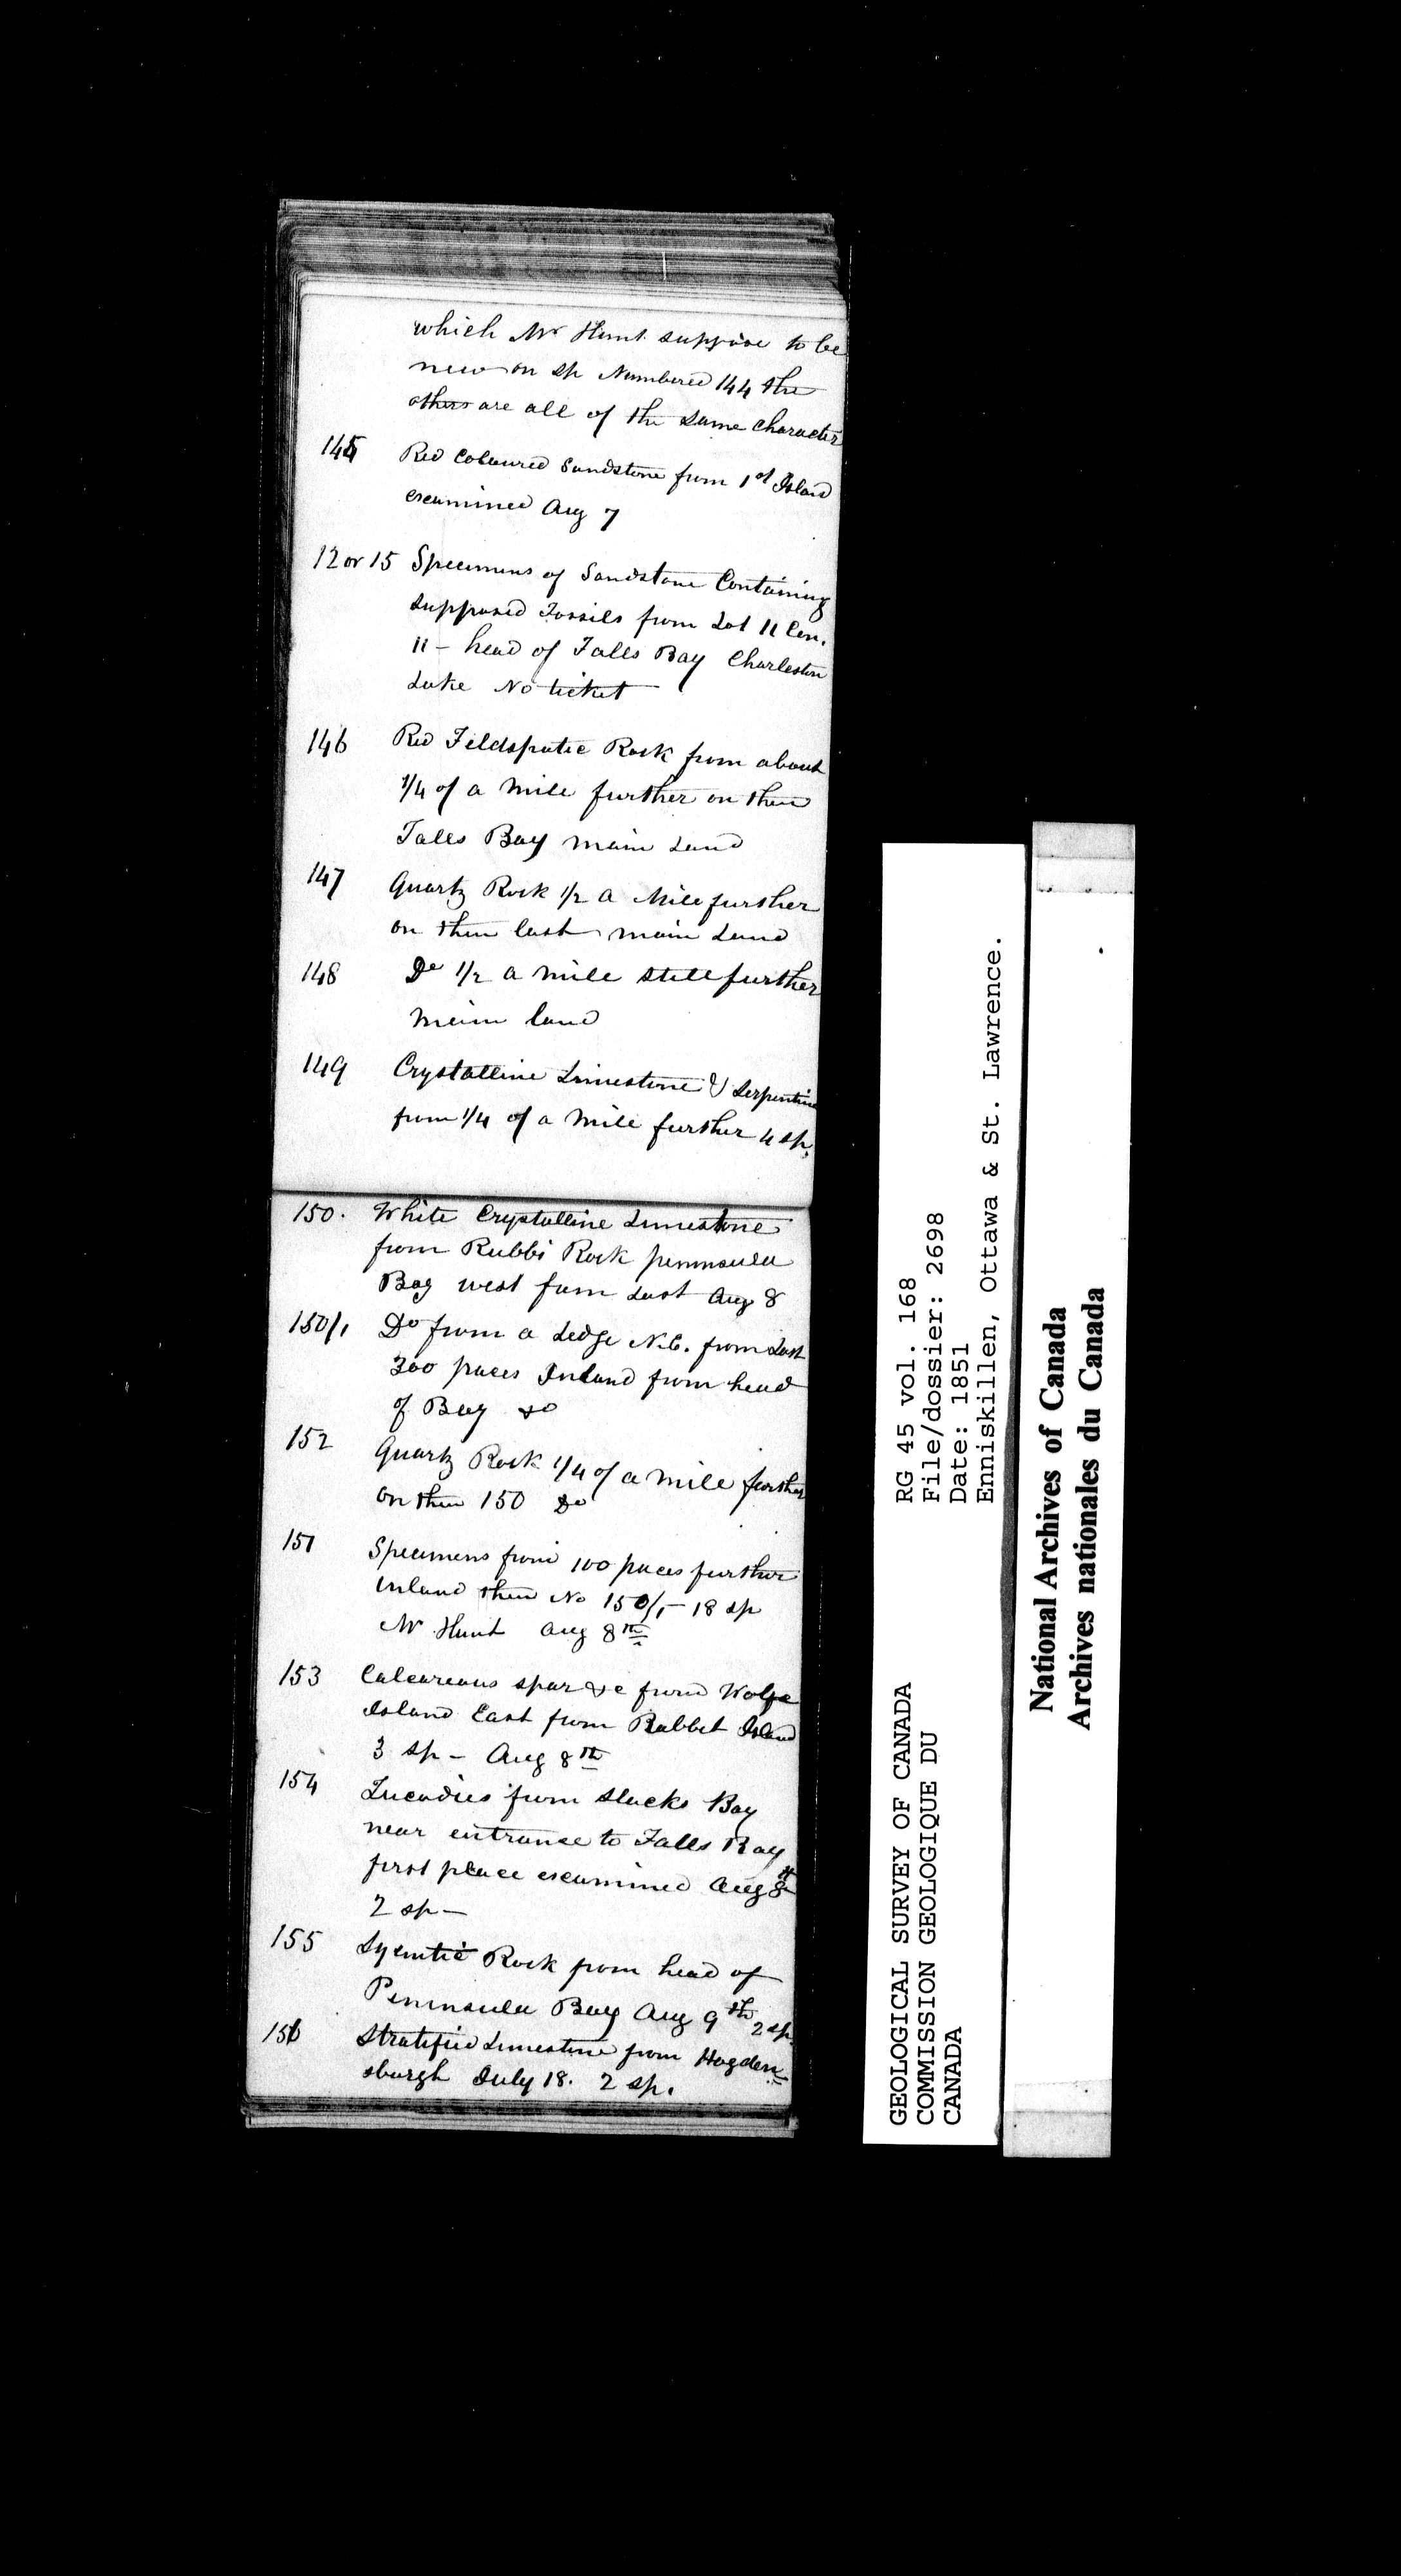 which Mr Hunt suppose to be
new on sp Numbered 144 the
others are all of the same Character
145 Red Coloured Sandstone from 1st Island
examined Aug 7
12 or 15 Specimens of Sandstone Containing
supposed Fossils from Lot 11 Con.
11 - head of Falls Bay Charleston
Lake No ticket
146 Red Feldspatic Rock from about
1/4 of a Mile further on then
Falls Bay main Land
147 Quartz Rock 1/2 a Mile further
on then last main Land
148 Do 1/2 a mile still further
Main land
149 Crystalline Limestone & Serpentine
from 1/4 of a Mile further 4 sp.
150. White Crystalline Limestone
from Rubbi Rock peninsula
Bay west from Last Aug 8
150/1 Do from a Ledge N.E. from Last
300 paces Inland from head
of Bay Do
152 Quartz Rock 1/4 of a Mile further
on then 150 Do
151 Specimens from 100 paces further
Inland then No 150/1 - 18 sp
Mr Hunt Aug 8th
153 Calcareous spar &c from Wolfe
Island East from Rabbit Island
3 sp - Aug 8th
154 from Slacks Bay
near entrance to Falls Bay
first place examined Aug 8th
2 sp -
155 Syenitic Rock from head of
Peninsula Bay Aug 9th 2 sp.
156 Stratified Limestone from Hogden-
sburgh July 18. 2 sp.
GEOLOGICAL SURVEY OF CANADA
COMMISSION GEOLOGIQUE DU
CANADA
RG 45 vol. 168
File/dossier: 2698
Date: 1851
Enniskillen, Ottawa & St. Lawrence.
National Archives of Canada
Archives nationales du Canada